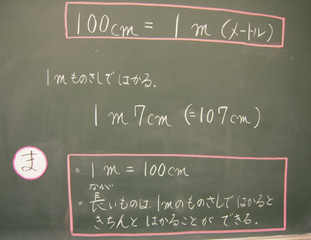 100cm = 1m (メートル)
1mものさしではかる.
1m7cm (=107cm)
ま
・1m = 100cm
なが
・長いものは 1mのものさしではかると
きちんと はかることが できる.